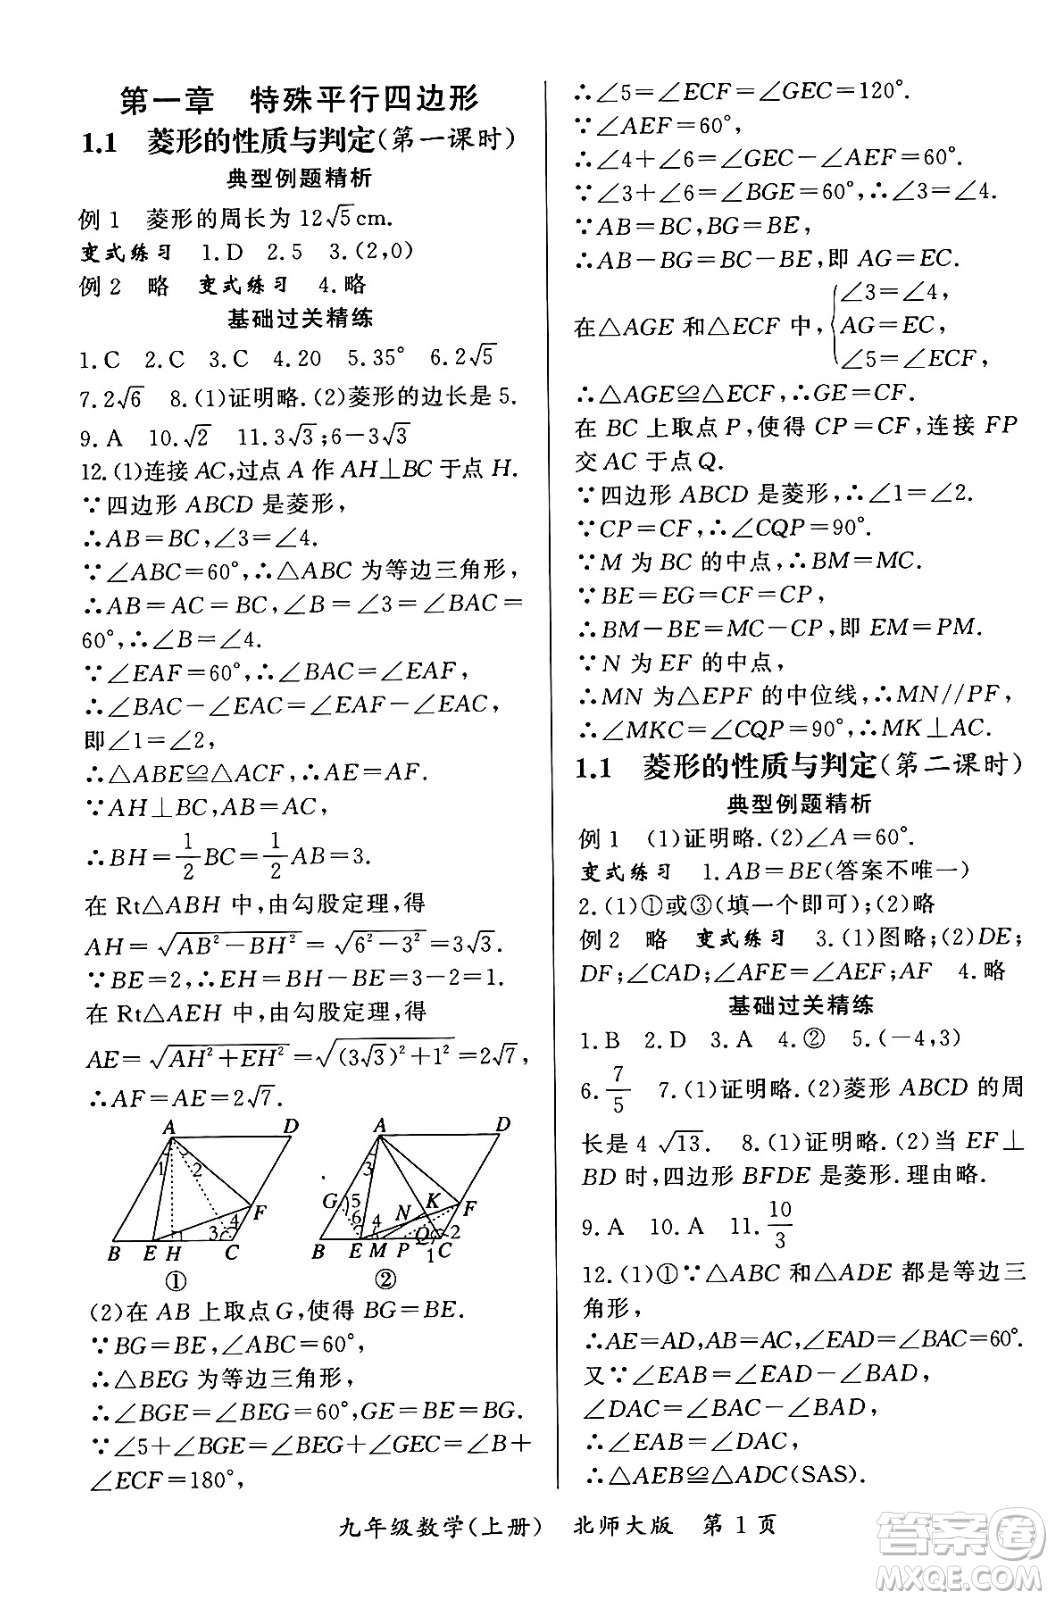 第一章 特殊平行四边形
1.1 菱形的性质与判定(第一课时)
典型例题精析
例1 菱形的周长为12√5cm.
变式练习 1.D 2.5 3.(2,0)
例2 略 变式练习 4.略
基础过关精练
1.C 2.C 3.C 4.20 5.35° 6.2√5
7.2√6 8.(1)证明略.(2)菱形的边长是5.
9.A 10.√2 11.3√3;6-3√3
12.(1)连接AC,过点A作AH⊥BC于点H.
∵四边形ABCD是菱形,
∴AB=BC,∠3=∠4.
∵∠ABC=60°,∴△ABC为等边三角形,
∴AB=AC=BC,∠B=∠3=∠BAC=
60°,∴∠B=∠4.
∵∠EAF=60°,∴∠BAC=∠EAF,
∴∠BAC-∠EAC=∠EAF-∠EAC,
即∠1=∠2,
∴△ABE≌△ACF,∴AE=AF.
∵AH⊥BC,AB=AC,
∴BH=1/2BC=1/2AB=3.
在Rt△ABH中,由勾股定理,得
AH=√(AB²-BH²)=√(6²-3²)=3√3.
∵BE=2,∴EH=BH-BE=3-2=1.
在Rt△AEH中,由勾股定理,得
AE=√(AH²+EH²)=√((3√3)²+1²)=2√7,
∴AF=AE=2√7.
A D 1 2 F 4 3 B E H C
A D 3 G 5 N K F 6 4 2 B E M P Q 1 C
① ②
(2)在AB上取点G,使得BG=BE.
∵BG=BE,∠ABC=60°,
∴△BEG为等边三角形,
∴∠BGE=∠BEG=60°,GE=BE=BG.
∵∠5+∠BGE=∠BEG+∠GEC=∠B+
∠ECF=180°,
∴∠5=∠ECF=∠GEC=120°.
∵∠AEF=60°,
∴∠4+∠6=∠GEC-∠AEF=60°.
∵∠3+∠6=∠BGE=60°,∴∠3=∠4.
∵AB=BC,BG=BE,
∴AB-BG=BC-BE,即AG=EC.
∠3=∠4,
在△AGE和△ECF中,{AG=EC,
∠5=∠ECF,
∴△AGE≌△ECF,∴GE=CF.
在BC上取点P,使得CP=CF,连接FP
交AC于点Q.
∵四边形ABCD是菱形,∴∠1=∠2.
∵CP=CF,∴∠CQP=90°.
∵M为BC的中点,∴BM=MC.
∵BE=EG=CF=CP,
∴BM-BE=MC-CP,即EM=PM.
∵N为EF的中点,
∴MN为△EPF的中位线,∴MN//PF,
∴∠MKC=∠CQP=90°,∴MK⊥AC.
1.1 菱形的性质与判定(第二课时)
典型例题精析
例1 (1)证明略.(2)∠A=60°.
变式练习 1.AB=BE(答案不唯一)
2.(1)①或③(填一个即可);(2)略
例2 略 变式练习 3.(1)图略;(2)DE;
DF;∠CAD;∠AFE=∠AEF;AF 4.略
基础过关精练
1.B 2.D 3.A 4.② 5.(-4,3)
6.7/5 7.(1)证明略.(2)菱形ABCD的周
长是4√13. 8.(1)证明略.(2)当EF⊥
BD时,四边形BFDE是菱形.理由略.
9.A 10.A 11.10/3
12.(1)①∵△ABC和△ADE都是等边三
角形,
∴AE=AD,AB=AC,∠EAD=∠BAC=60°.
又∵∠EAB=∠EAD-∠BAD,
∠DAC=∠BAC-∠BAD,
∴∠EAB=∠DAC,
∴△AEB≌△ADC(SAS).
九年级数学(上册) 北师大版 第1页
答案圈
MXQE.COM